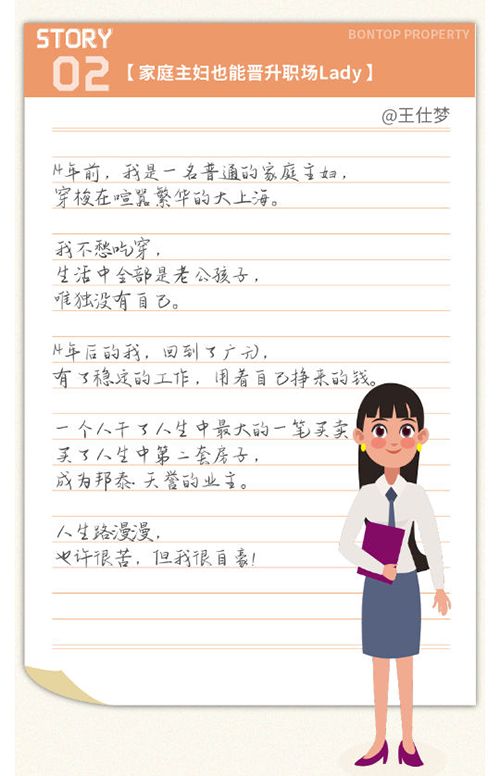 STORY
02
BONTOP PROPERTY
【家庭主妇也能晋升职场Lady】
@王仕梦
14年前，我是一名普通的家庭主妇，
穿梭在喧嚣繁华的大上海。
我不愁吃穿，
生活中全部是老公孩子，
唯独没有自己。
14年后的我，回到了广元，
有了稳定的工作，用着自己挣来的钱。
一个人干了人生中最大的一笔买卖
买了人生中第二套房子，
成为邦泰·天誉的业主。
人生路漫漫，
也许很苦，但我很自豪！